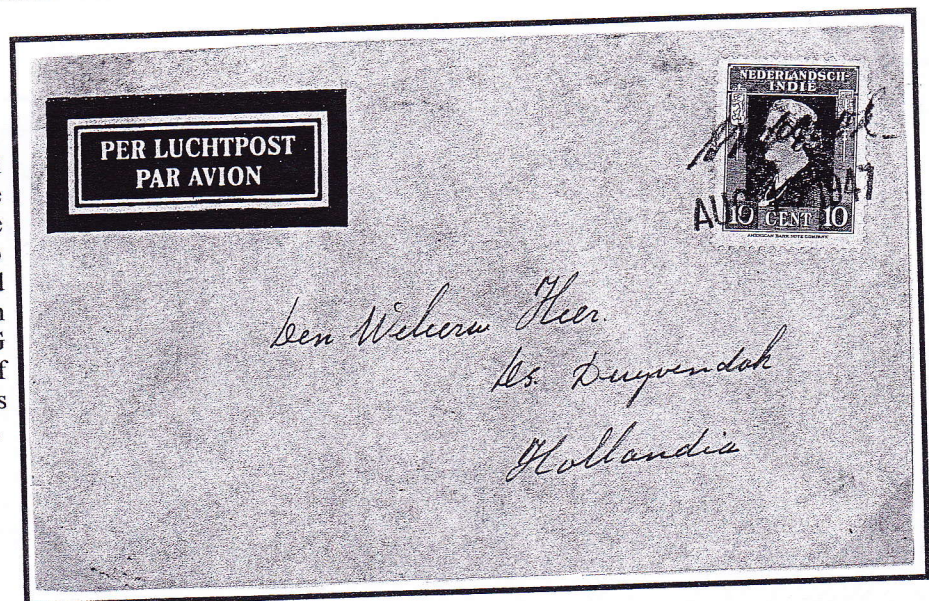 PER LUCHTPOST
PAR AVION
NEDERLANDSCH-
INDIË
AUG 1947
10 CENT 10
AMERICAN BANK NOTE COMPANY
Den Heer.
Ds. Duyvendak
Hollandia